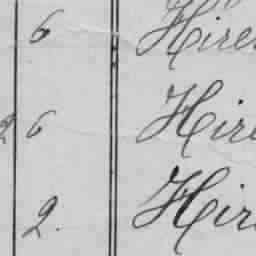 6 Hire
2 6 Hire
2. Hire